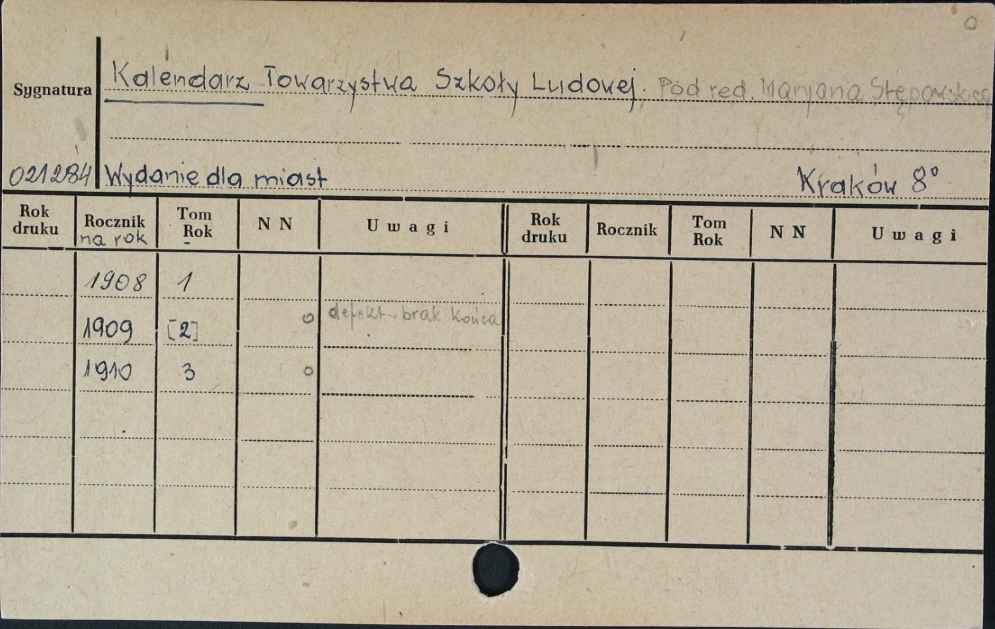 Sygnatura Kalendarz Towarzystwa Szkoły Ludowej. Pod red. Maryana Stępowskiego
021284 Wydanie dla miast Kraków 8°
Rok druku Rocznik na rok Tom Rok N N Uwagi Rok druku Rocznik Tom Rok N N Uwagi
1908 1
1909 [2] o defekt. brak końca
1910 3 o